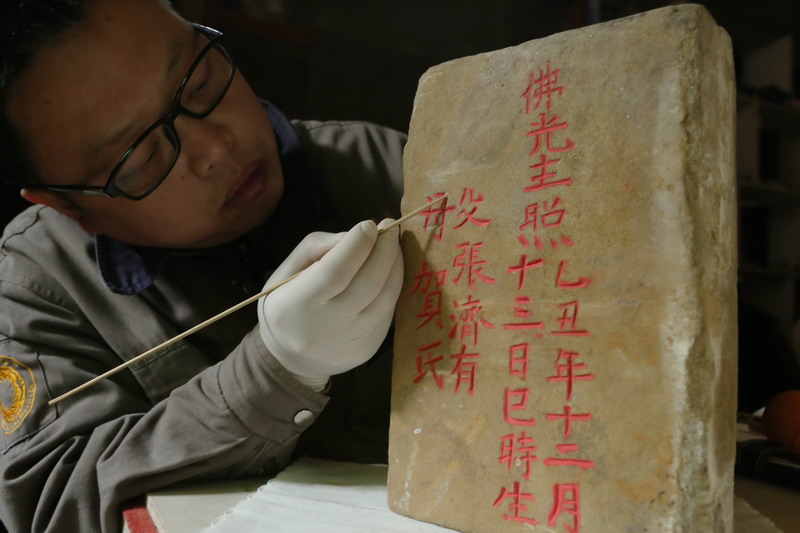 佛光主照
乙丑年十二月
十三日巳時生
父張濟有
母賀氏